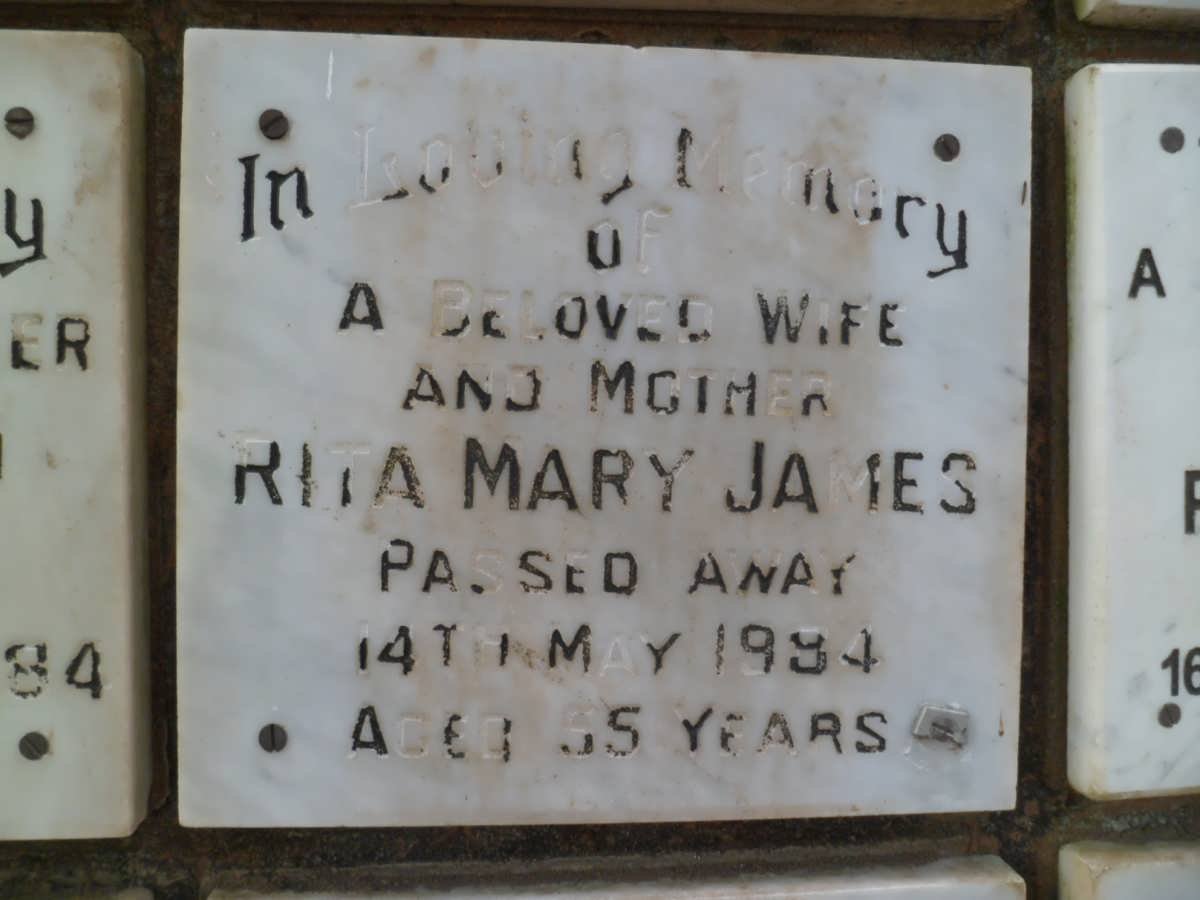 In Loving Memory
OF
A BELOVED WIFE
AND MOTHER
RITA MARY JAMES
PASSED AWAY
14TH MAY 1984
AGED 55 YEARS
y
ER
84
A
16